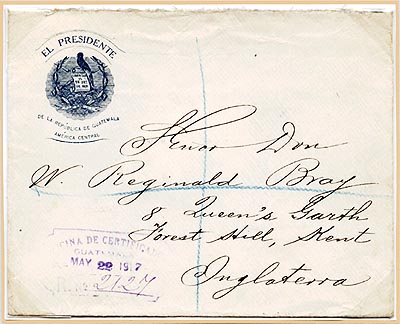 EL PRESIDENTE
DE LA REPÚBLICA DE GUATEMALA
AMÉRICA CENTRAL
Señor Don
W. Reginald Bray
8 Queen's Garth
Forest Hill, Kent
Inglaterra
CINA DE CERTIFICA
GUATEMALA
MAY 22 1917
No 2727